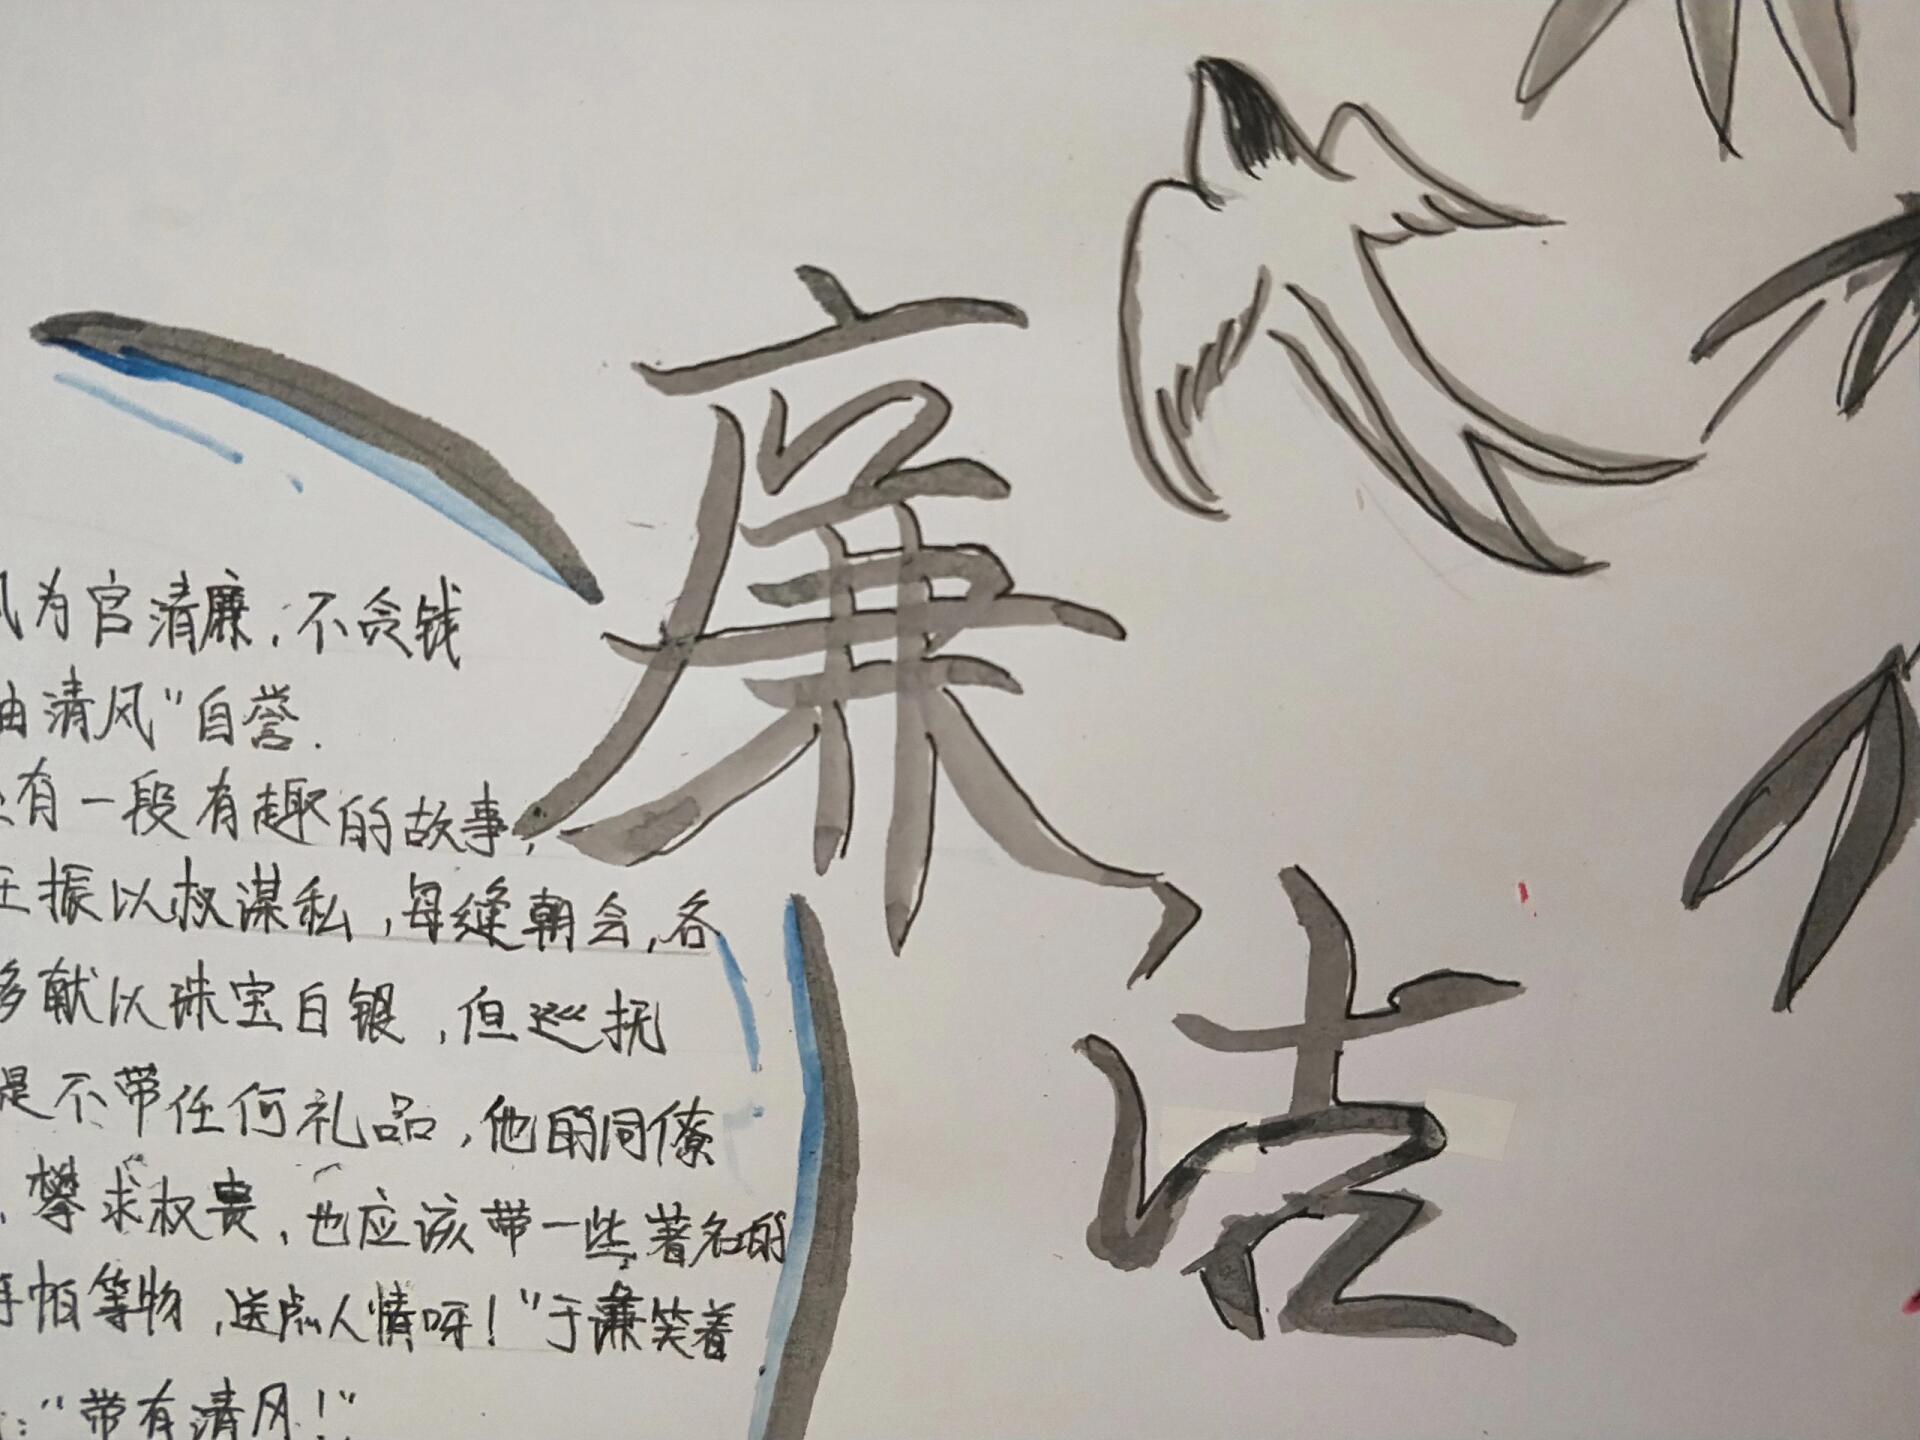 廉洁
为官清廉，不贪钱
清风”自誉.
有一段有趣的故事，
振以权谋私，每缝朝会，各
献以珠宝白银，但巡抚
是不带任何礼品，他的同僚
攀求权贵，也应该带一些著名的
帕等物，送点人情呀！”于谦笑着
：“带有清风！”